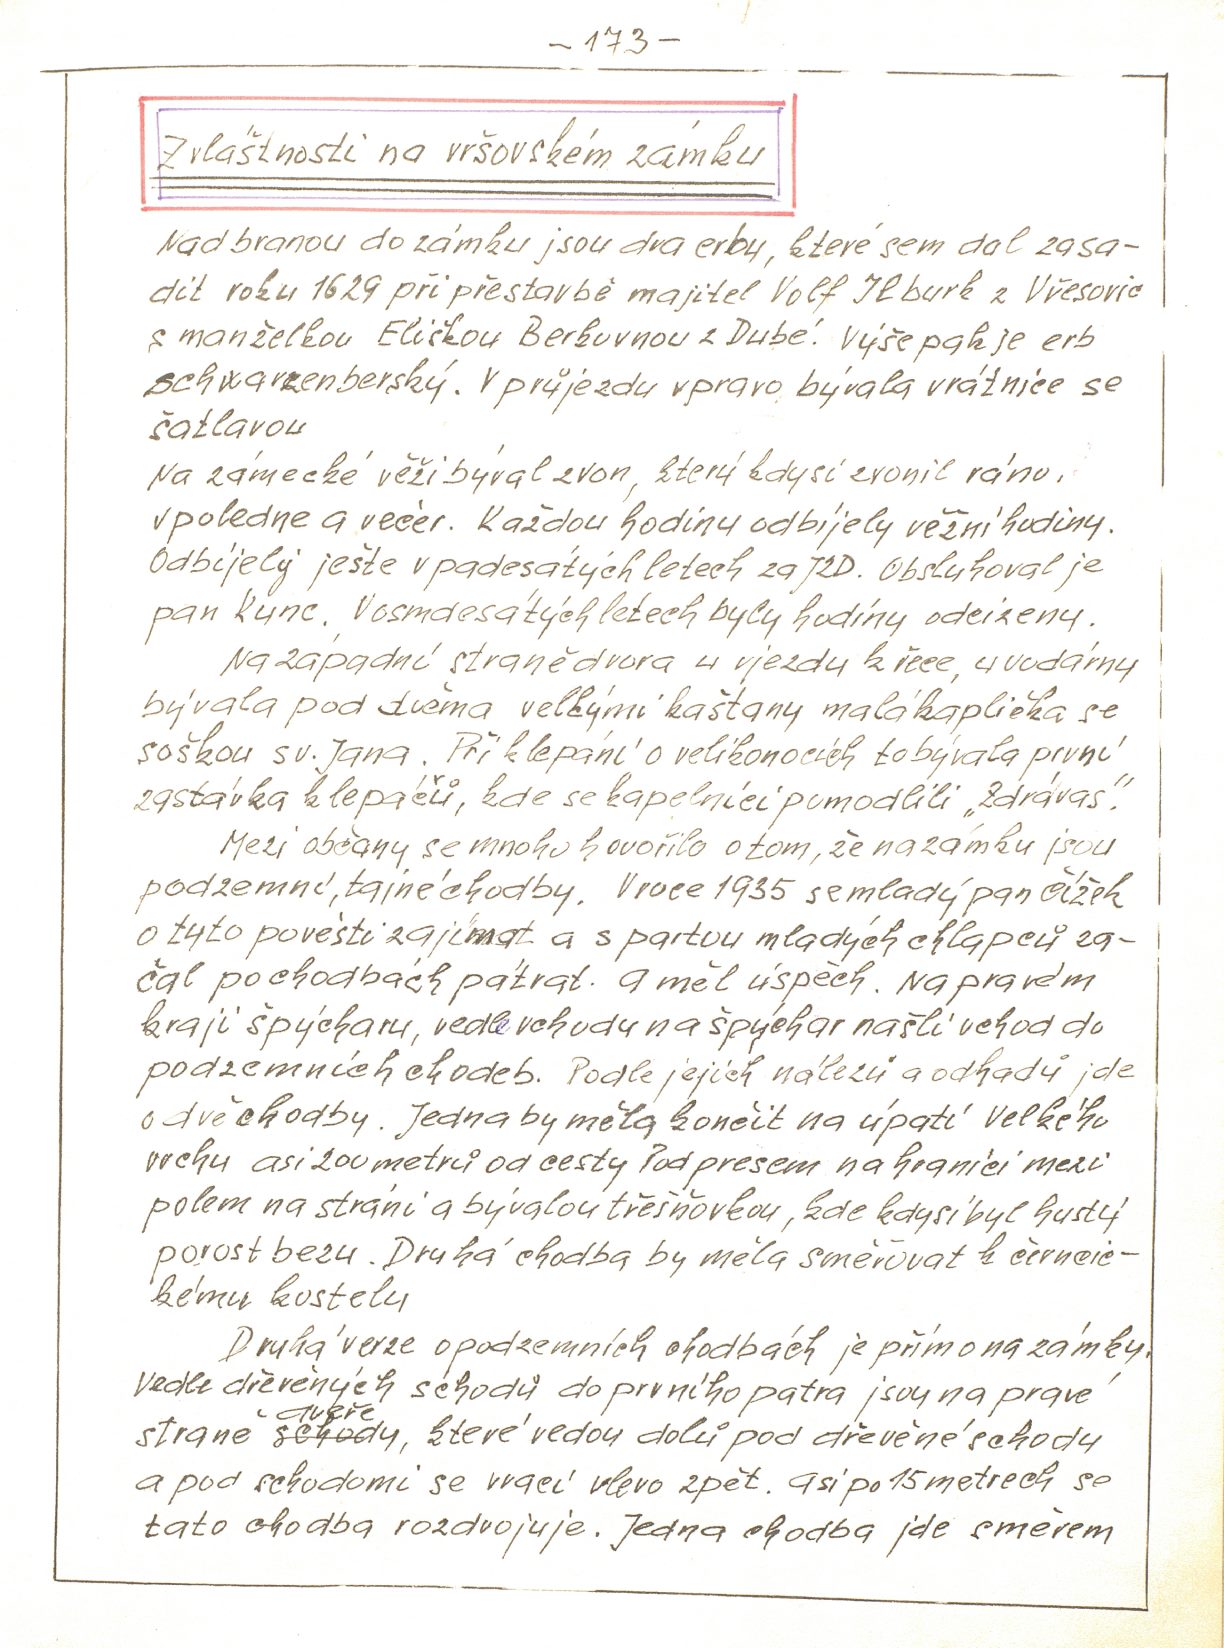 - 173 -
Zvláštnosti na vršovském zámku
Nad branou do zámku jsou dva erby, které sem dal zasa-
dit roku 1629 při přestavbě majitel Volf Ilburk z Vřesovic
s manželkou Eliškou Berkovnou z Dubé. Výše pak je erb
schwarzenberský. V průjezdu vpravo bývala vrátnice se
šatlavou
Na zámecké věži býval zvon, který kdysi zvonil ráno,
v poledne a večer. Každou hodinu odbíjely věžní hodiny.
Odbíjely ješte v padesátých letech za JZD. Obsluhoval je
pan Kunc. V osmdesátých letech byly hodiny odcizeny.
Na západní straně dvora u vjezdu k řece, u vodárny
bývala pod dvěma velkými kaštany malá kaplička se
soškou sv. Jana. Při klepání o velikonocích to bývala první
zastávka klepáčů, kde se kapelníci pomodlili „Zdrávas".
Mezi občany se mnoho hovořilo o tom, že na zámku jsou
podzemní, tajné chodby. V roce 1935 se mladý pan Čížek
o tyto pověsti zajímat a s partou mladých chlapců za-
čal po chodbách pátrat. A měl úspěch. Na pravém
kraji špýcharu, vedle vchodu na špýchar našli vchod do
podzemních chodeb. Podle jejich nálezů a odhadů jde
o dvě chodby. Jedna by měla končit na úpatí Velkého
vrchu asi 200 metrů od cesty Pod presem na hranici mezi
polem na stráni a bývalou třešňovkou, kde kdysi byl hustý
porost bezu. Druhá chodba by měla směřovat k černčic-
kému kostelu
Druhá verze o podzemních chodbách je přímo na zámku.
Vedle dřevěných schodů do prvního patra jsou na pravé
dveře
straně schody, které vedou dolů pod dřevěné schody
a pod schodomi se vrací vlevo zpět. Asi po 15 metrech se
tato chodba rozdvojuje. Jedna chodba jde směrem